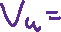 V_u =